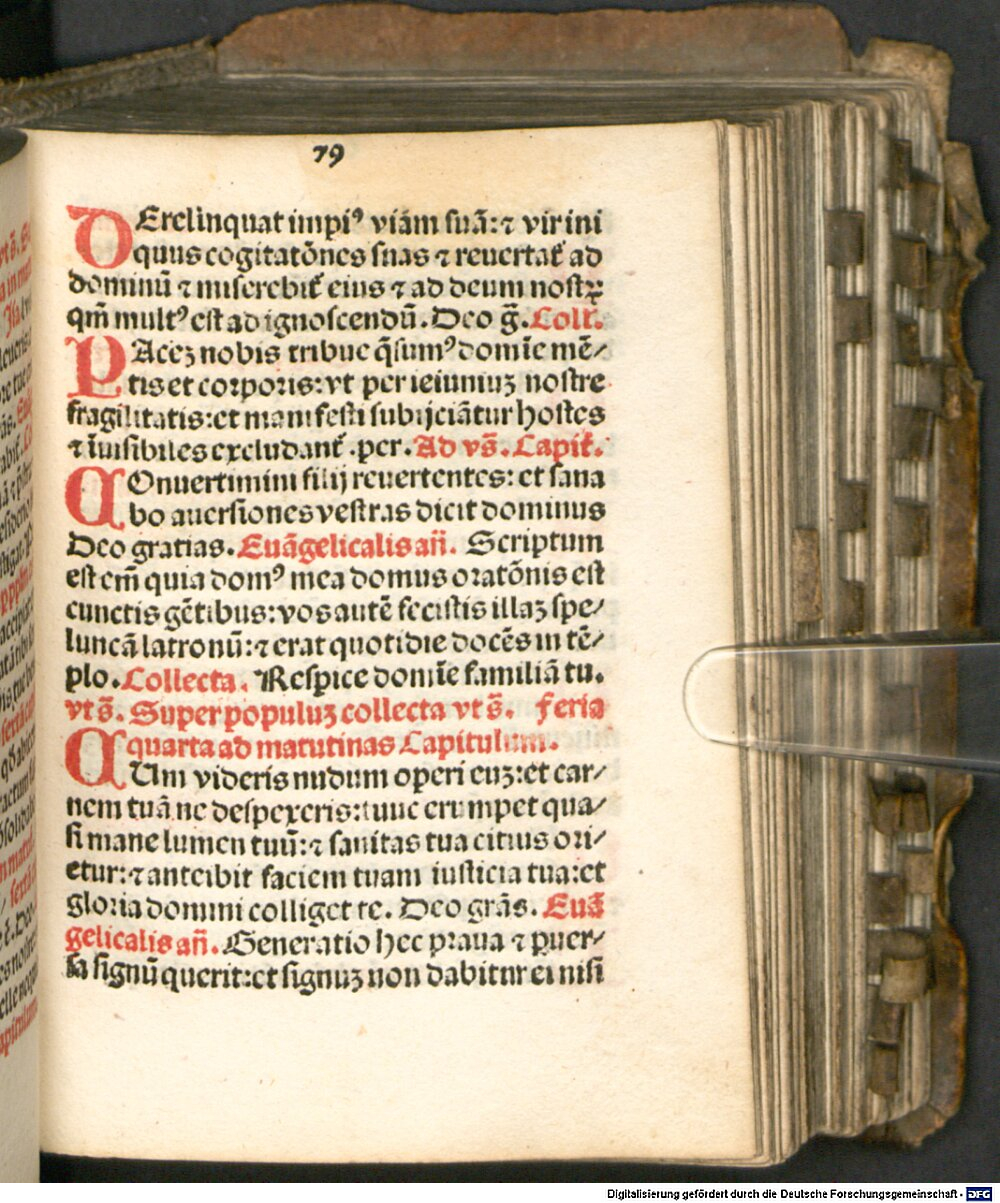 79
DErelinquat impiꝰ viam suã: ⁊ vir ini
quus cogitatõnes suas ⁊ reuertat᷑ ad
dominũ ⁊ miserebit᷑ eius ⁊ ad deum nostrꝝ
qm̃ multꝰ est ad ignoscendũ. Deo g̃. Coll᷑.
PAceꝫ nobis tribue q̃sumꝰ domĩe mẽ/
tis et corporis: vt per ieiuniuꝫ nostre
fragilitatis: et manifesti subijciãtur hostes
⁊ ĩuisibiles excludant᷑. per. Ad vs̃. Capit᷑.
COnuertimini filij reuertentes: et sana
bo auersiones vestras dicit dominus
Deo gratias. Euãgelicalis añ. Scriptum
est em̃ quia domꝰ mea domus oratõnis est
cunctis gẽtibus: vos autẽ fecistis illaꝫ spe/
luncã latronũ: ⁊ erat quotidie docẽs in tẽ/
plo. Collecta. Respice domĩe familiã tu.
vt s̃. Super populuꝫ collecta vt s̃. feria
quarta ad matutinas Capitulum.
CUm videris nudum operi euꝫ: et car/
nem tuã ne despexeris: tunc erumpet qua/
si mane lumen tuũ: ⁊ sanitas tua citius ori/
etur: ⁊ anteibit faciem tuam iusticia tua: et
gloria domini colliget te. Deo grãs. Euã
gelicalis añ. Generatio hec praua ⁊ puer/
sa signũ querit: et signuꝫ non dabitur ei nisi
Digitalisierung gefördert durch die Deutsche Forschungsgemeinschaft - DFG